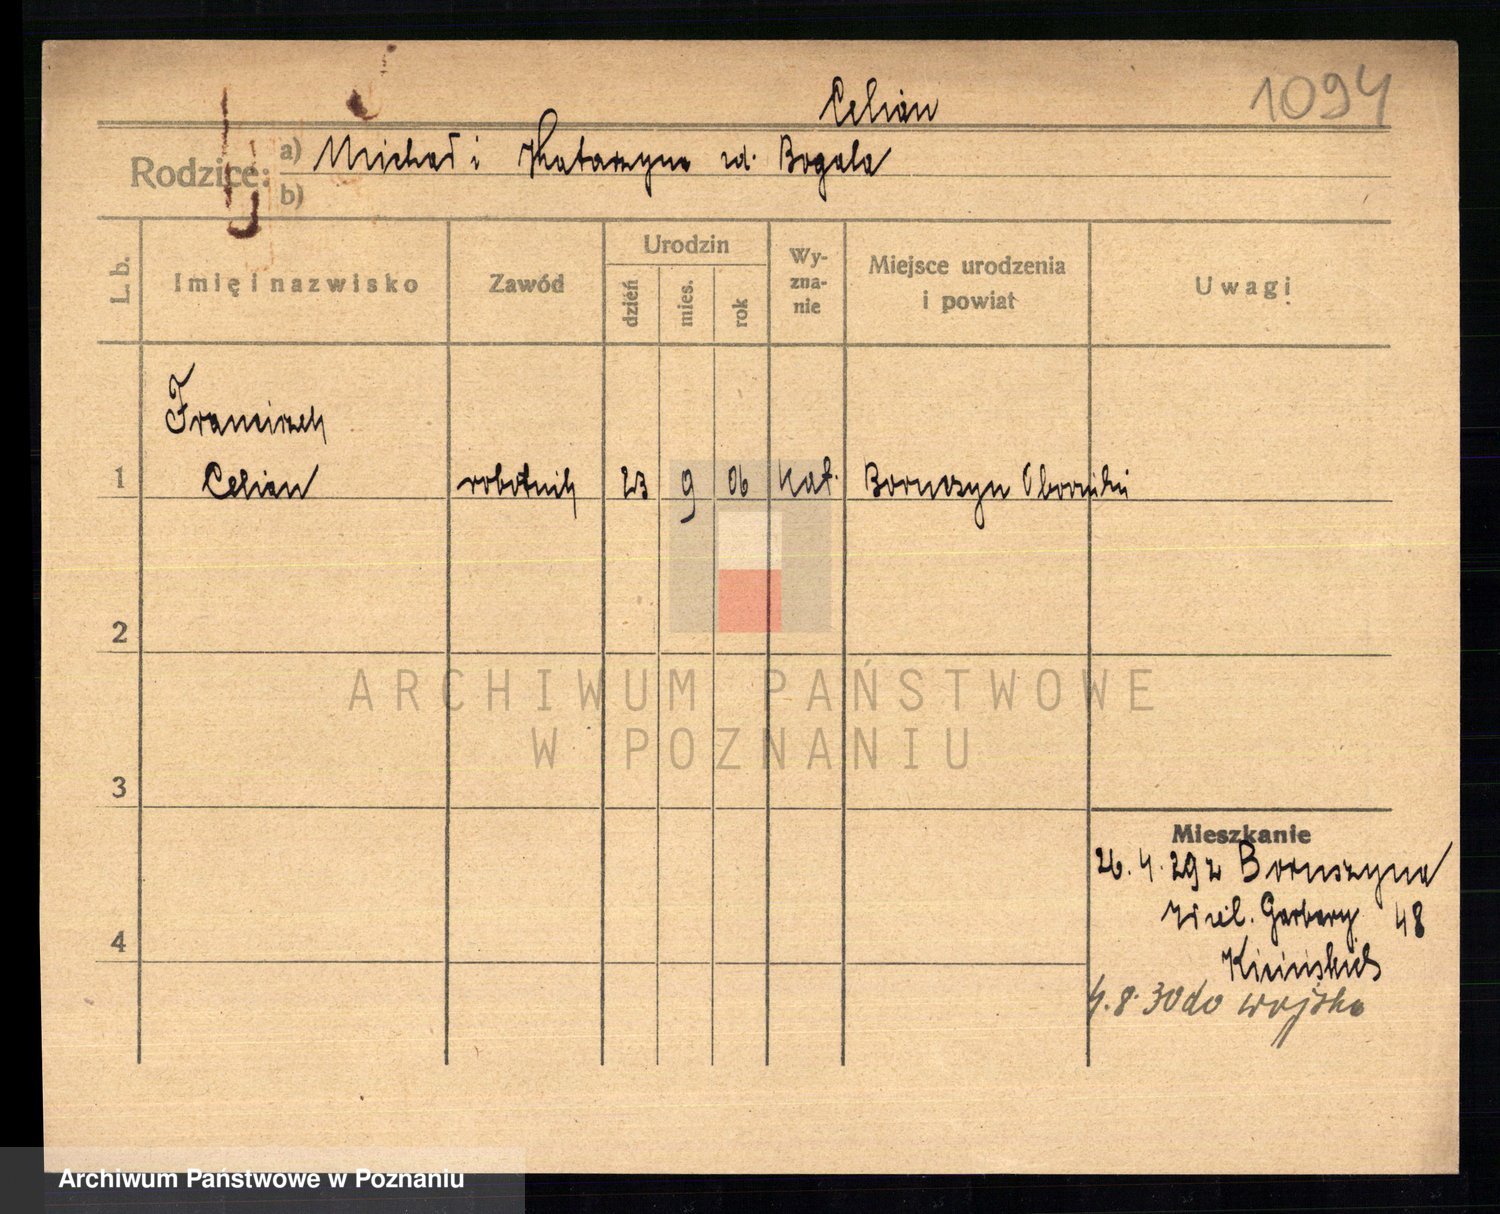 1094
Celian
Rodzice: a) Michał i Katarzyna zd. Bogala
b)
L. b. Imię i nazwisko Zawód Urodzin dzień mies. rok Wyznanie Miejsce urodzenia i powiat Uwagi
Franciszek
1 Celian robotnik 23 9 06 kat. Boruszyn Oborniki
2
ARCHIWUM PAŃSTWOWE
W POZNANIU
3
Mieszkanie
26. 4. 29 z Boruszyna
Garbary 48
4
4. 8. 30 do wojska
Archiwum Państwowe w Poznaniu